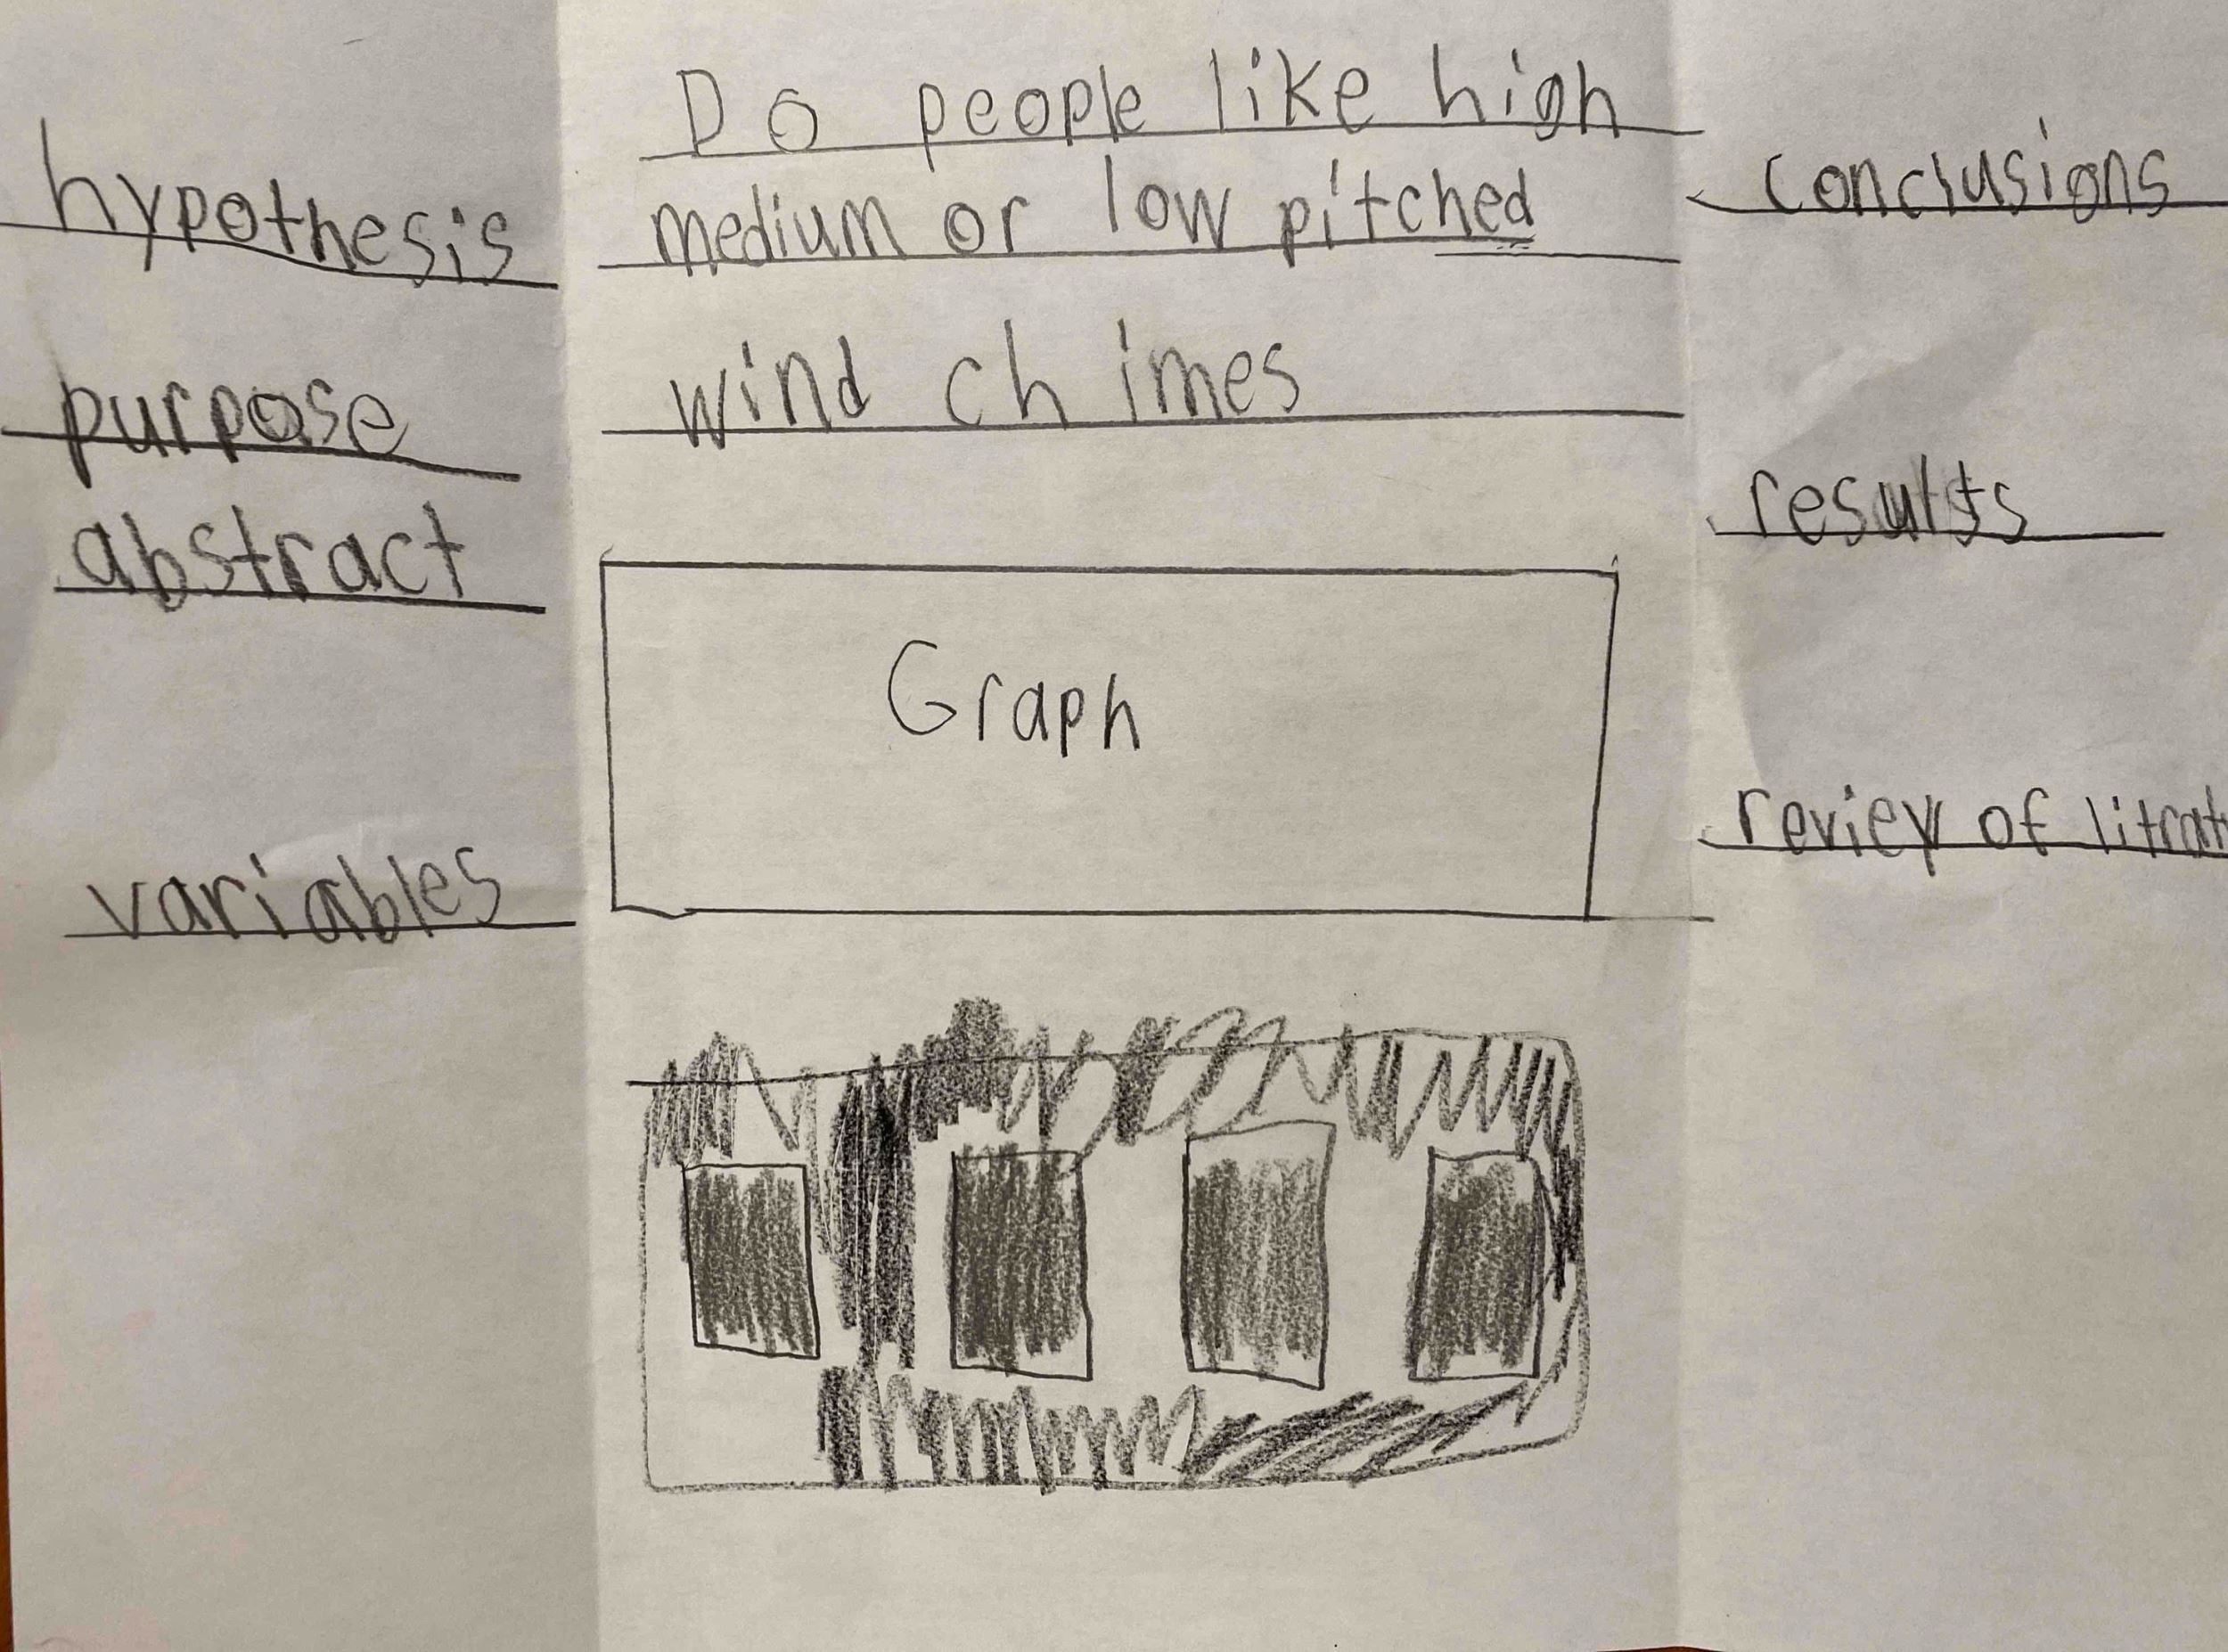 hypothesis
purpose
abstract
variables
Do people like high
medium or low pitched
wind chimes
Graph
conclusions
results
review of litrat